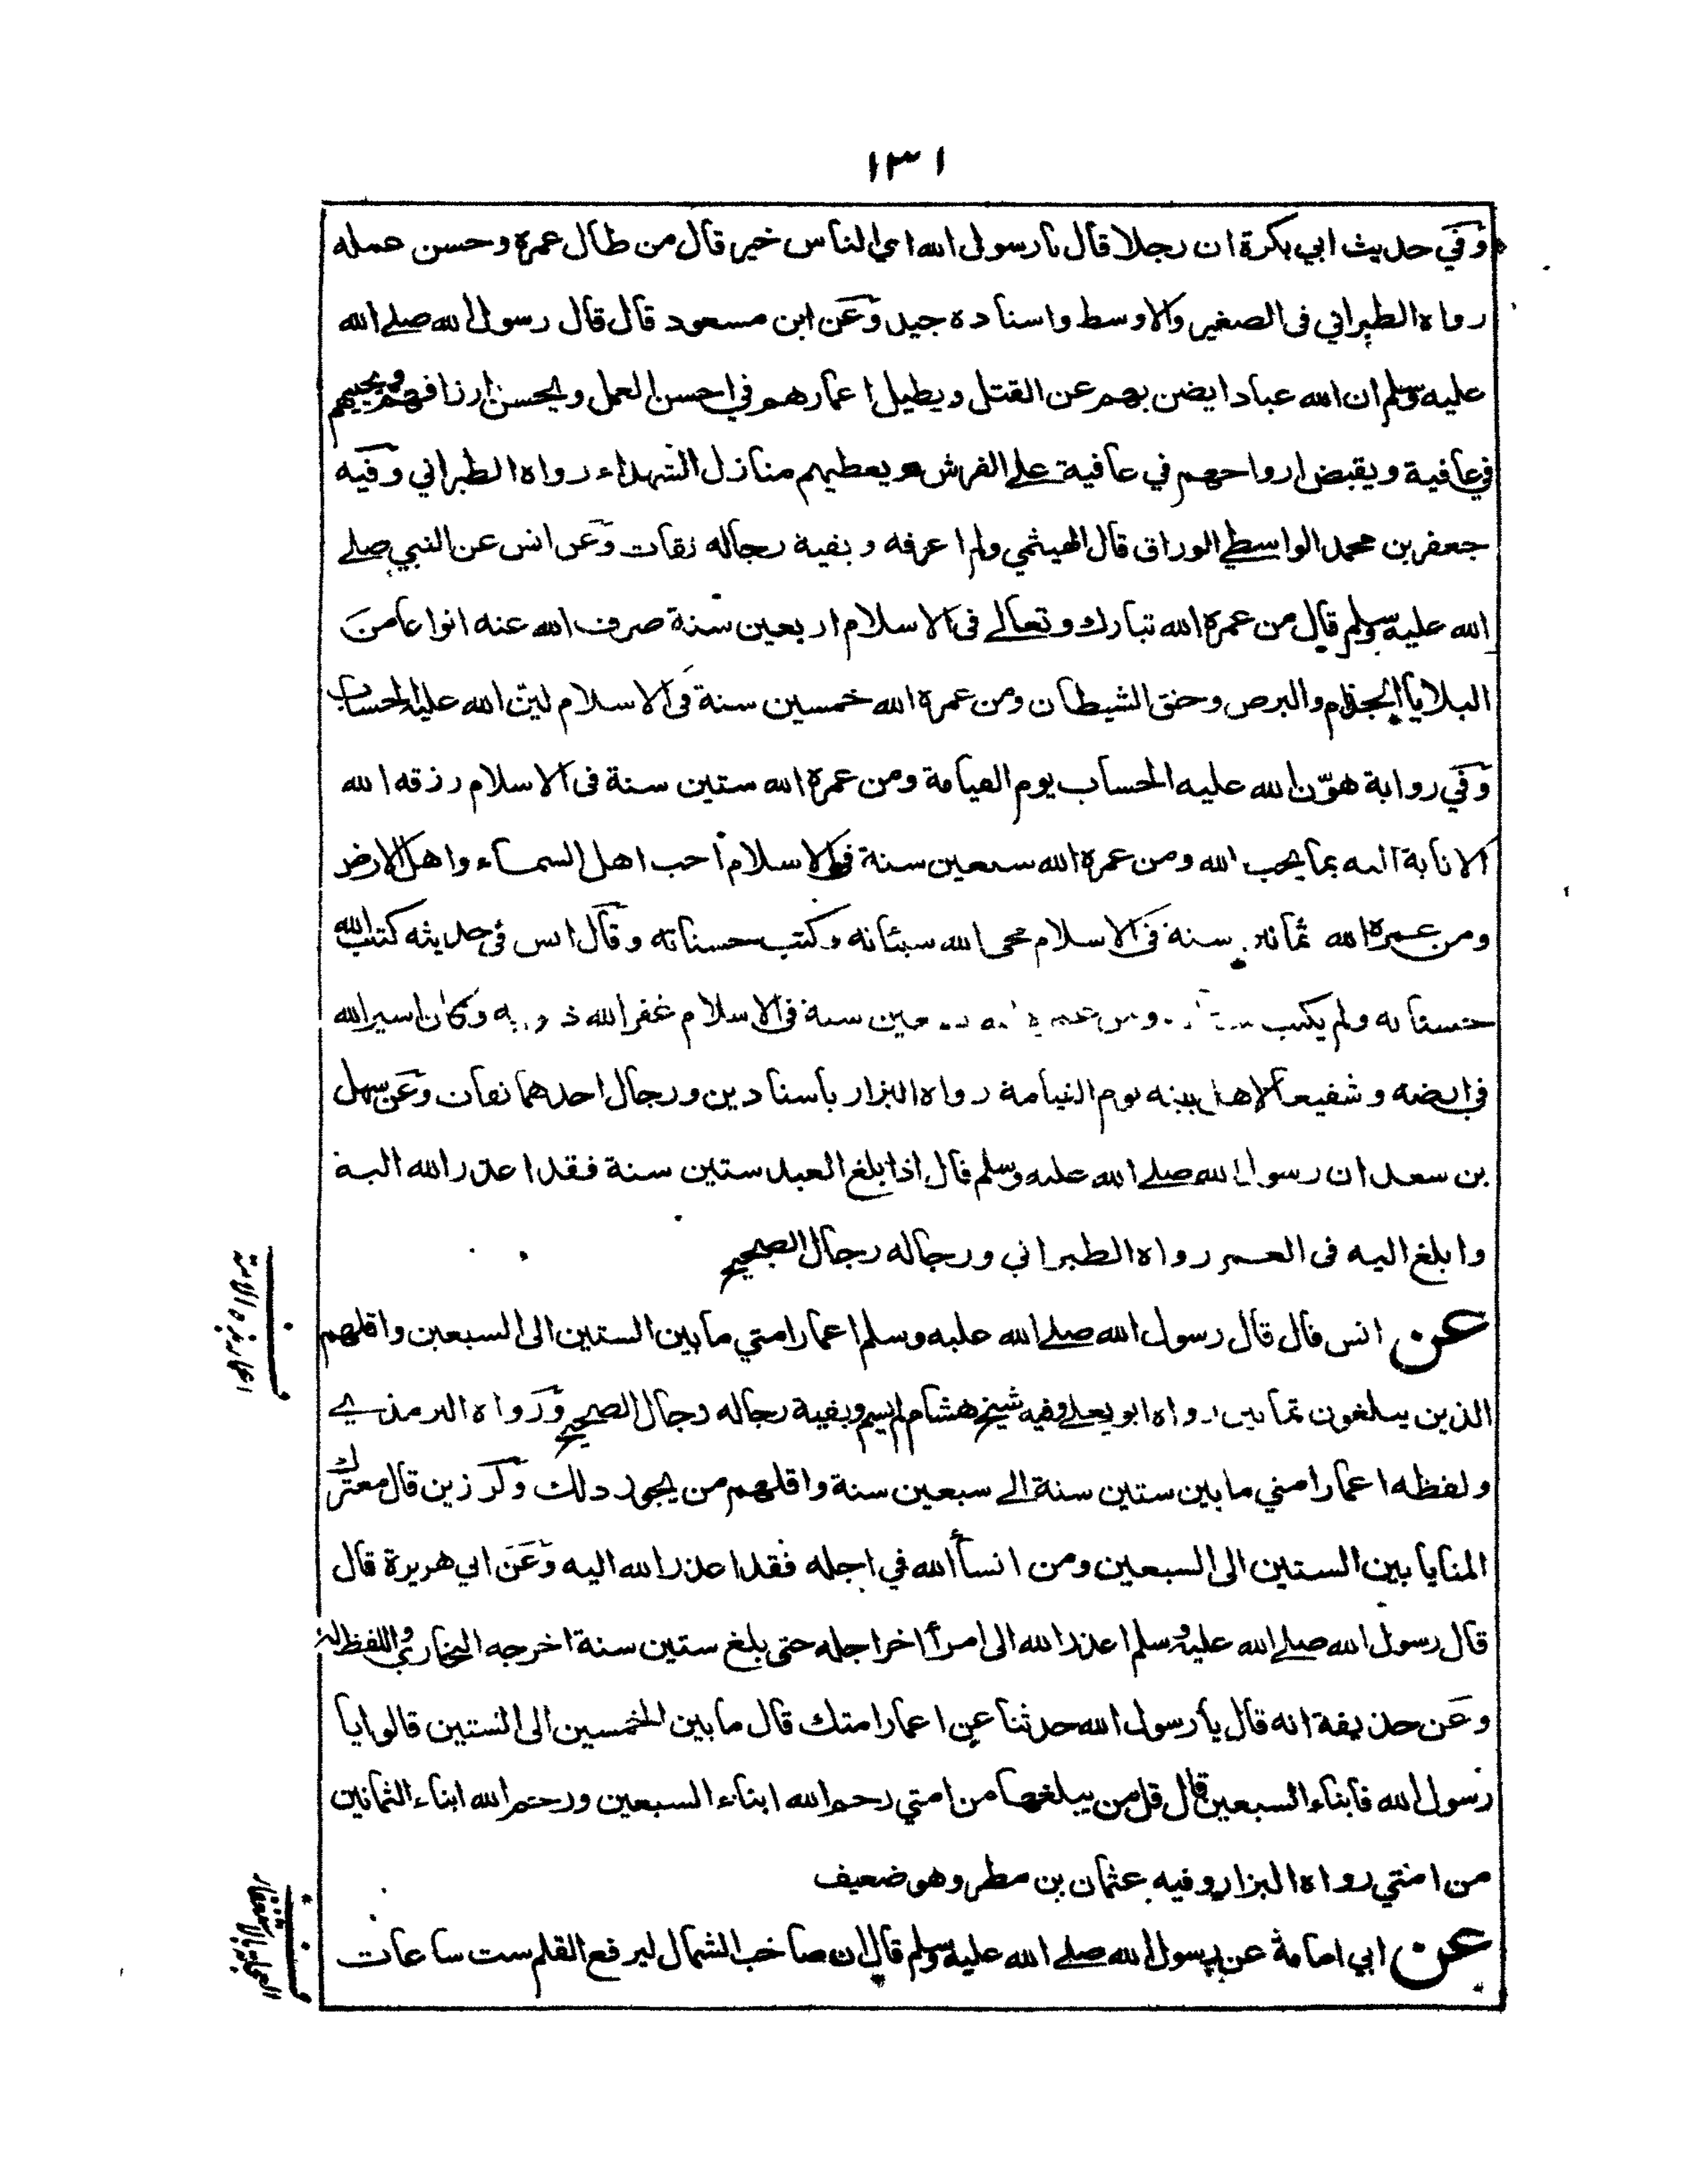 ١٣١
وفي حديث ابي بكرة ان رجلا قال يا رسول الله اي الناس خير قال من طال عمره وحسن عمله
رواه الطبراني في الصغير والاوسط واسناده جيد وعن ابن مسعود قال قال رسول الله صلے الله
عليه وسلم ان الله عبادا يضن بهم عن القتل ويطيل اعمارهم في احسن العمل ويحسن ارزاقهم ويحييهم
في عافية ويقبض ارواحهم في عافية علے الفرش ويعطيهم منازل الشهداء رواه الطبراني وفيه
جعفر بن محمد الواسطي الوراق قال الهيثمي ولم اعرفه وبقية رجاله ثقات وعن انس عن النبي صلے
الله عليه وسلم قال من عمره الله تبارك وتعالے فى الاسلام اربعين سنة صرف الله عنه انواعا من
البلايا الجذام والبرص وحنق الشيطان ومن عمره الله خمسين سنة فى الاسلام ليّن الله عليه الحساب
وفي رواية هوّن الله عليه الحساب يوم القيامة ومن عمره الله ستين سنة فى الاسلام رزقه الله
الانابة اليه بما يحب الله ومن عمره الله سبعين سنة في الاسلام احب اهل السماء واهل الارض
ومن عمره الله ثمانين سنة فى الاسلام محى الله سيئاته وكتب حسناته وقال انس في حديثه كتب الله
حسناته ولم يكتب ومن سنة فى الاسلام غفر الله ذنوبه وكان اسير الله
في ارضه وشفيعا لاهل بيته يوم القيامة رواه البزار باسنادين ورجال احدهما ثقات وعن سهل
بن سعد ان رسول الله صلے الله عليه وسلم قال اذا بلغ العبد ستين سنة فقد اعذر الله اليه
وابلغ اليه فى العمر رواه الطبراني ورجاله رجال الصحيح
عن انس قال قال رسول الله صلے الله عليه وسلم اعمار امتي ما بين الستين الى السبعين واقلهم
الذين يبلغون ثمانين رواه ابو يعلے وفيه شيخ هشام لم يسم وبقية رجاله رجال الصحيح ورواه الترمذي
ولفظه اعمار امتي ما بين ستين سنة الے سبعين سنة واقلهم من يجوز ذلك وذكر رزين قال معترك
المنايا بين الستين الى السبعين ومن انسأ الله في اجله فقد اعذر الله اليه وعن ابي هريرة قال
قال رسول الله صلے الله عليه وسلم اعذر الله الى امرأ اخر اجله حتى بلغ ستين سنة اخرجه البخاري واللفظ له
وعن حذيفة انه قال يا رسول الله حدثنا عن اعمار امتك قال ما بين الخمسين الى الستين قالوا يا
رسول الله فابناء السبعين قال قل من يبلغها من امتي رحم الله ابناء السبعين ورحم الله ابناء الثمانين
من امتي رواه البزار وفيه عثمان بن مطر وهو ضعيف
عن ابي امامة عن رسول الله صلے الله عليه وسلم قال ان صاحب الشمال ليرفع القلم ست ساعات